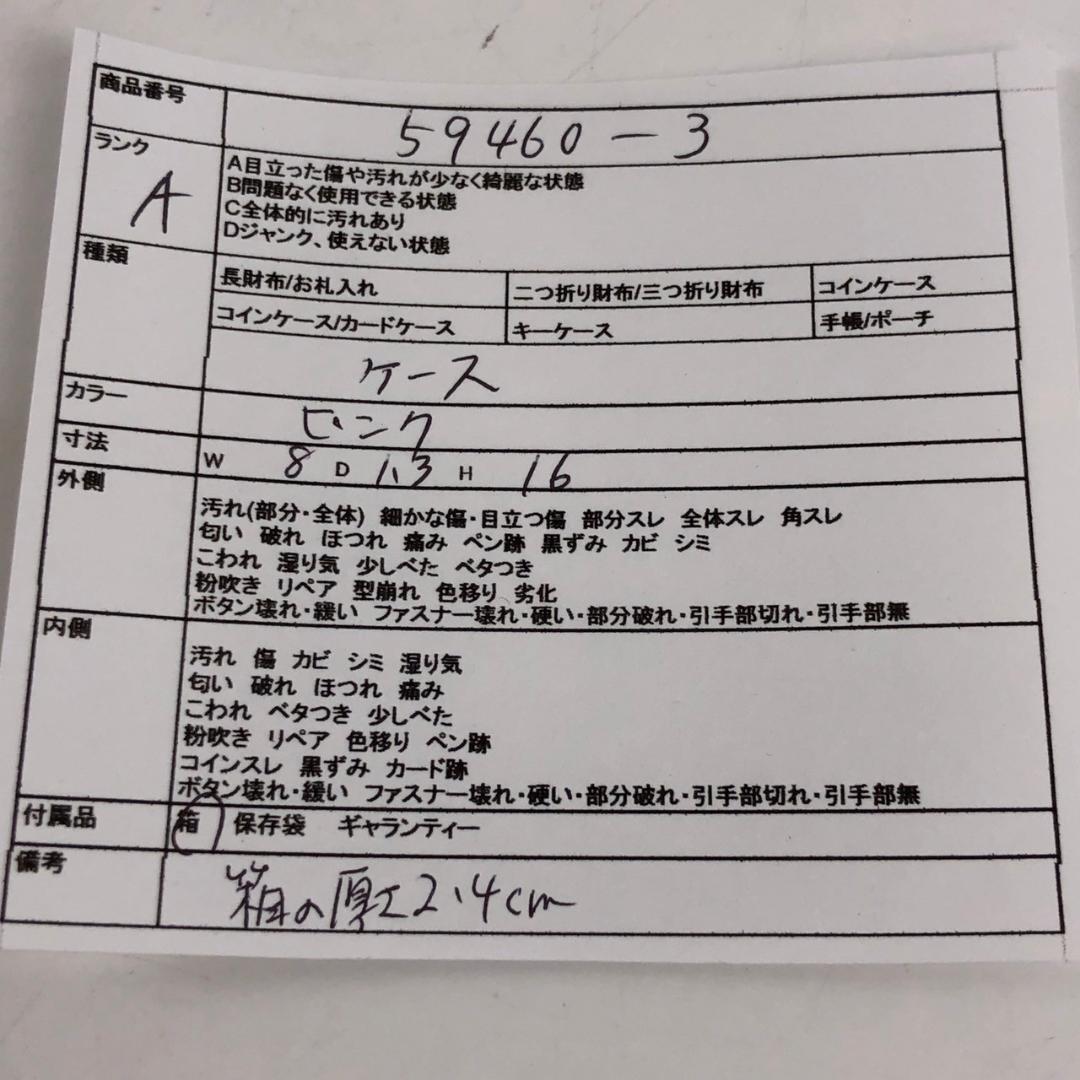 商品番号
59460-3
ランク
A
A目立った傷や汚れが少なく綺麗な状態
B問題なく使用できる状態
C全体的に汚れあり
Dジャンク、使えない状態
種類
長財布/お札入れ 二つ折り財布/三つ折り財布 コインケース
コインケース/カードケース キーケース 手帳/ポーチ
ケース
カラー
ピンク
寸法
W 8 D 1.3 H 16
外側
汚れ(部分・全体) 細かな傷・目立つ傷 部分スレ 全体スレ 角スレ
匂い 破れ ほつれ 痛み ペン跡 黒ずみ カビ シミ
こわれ 湿り気 少しべた ベタつき
粉吹き リペア 型崩れ 色移り 劣化
ボタン壊れ・緩い ファスナー壊れ・硬い・部分破れ・引手部切れ・引手部無
内側
汚れ 傷 カビ シミ 湿り気
匂い 破れ ほつれ 痛み
こわれ ベタつき 少しべた
粉吹き リペア 色移り ペン跡
コインスレ 黒ずみ カード跡
ボタン壊れ・緩い ファスナー壊れ・硬い・部分破れ・引手部切れ・引手部無
付属品
箱 保存袋 ギャランティー
備考
箱の厚さ2.4cm